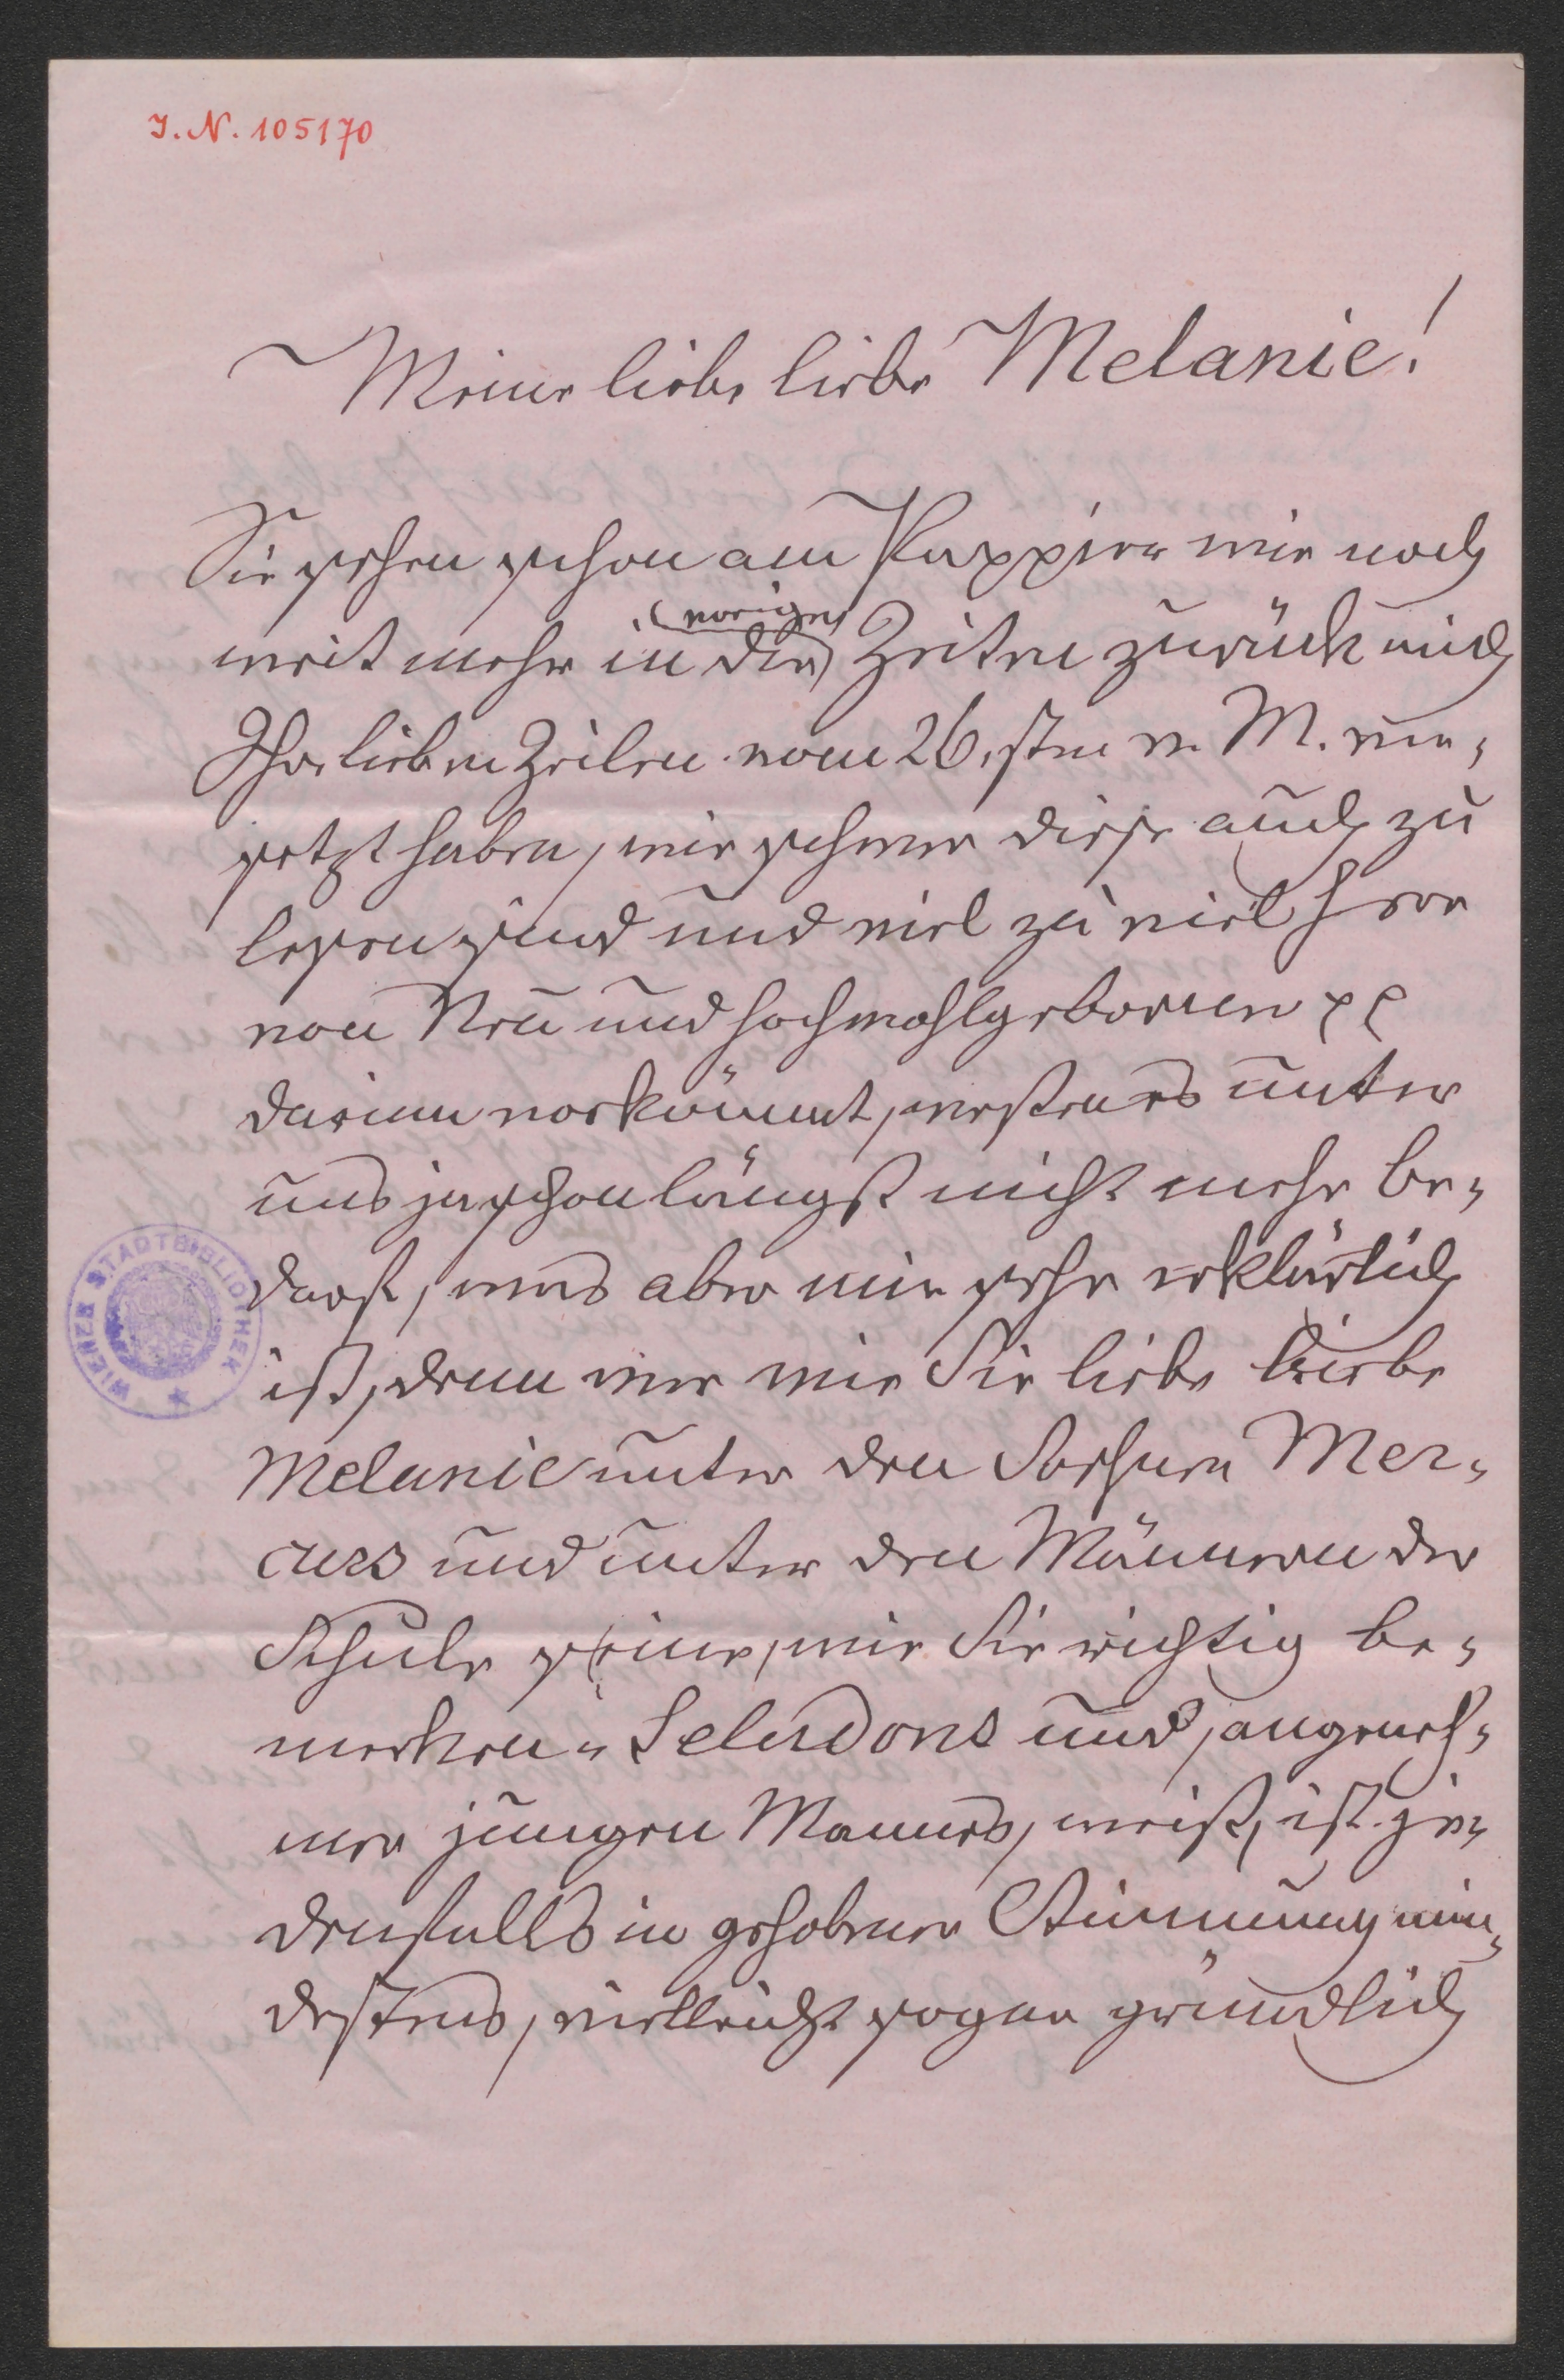 J. N. 105170
Meine liebe liebe Melanie!
Sie sehen schon am Pappier wie noch
weit mehr in die
vorigen
Zeiten zurück mich
Ihre lieben Zeilen vom 26.sten v. M. ver-
setzt haben, wie schwer diese auch zu
lesen sind und viel zu viel Herr
von Neu und hochwohlgeboren pp
darinn vorkömmt, wessen es unter
uns ja schon längst nicht mehr be-
darf, was aber mir sehr erklärlich
ist, denn wer wie Sie liebe liebe
Melanie unter den Söhnen Mer-
curs und unter den Männern der
Schule seine, wie Sie richtig be-
merken, Seladons und, angeneh-
mer jungen Mannes, weiß, ist je-
denfalls in gehobener Stimmung min-
destens, vielleicht sogar gründlich
WIENER STADTBIBLIOTHEK